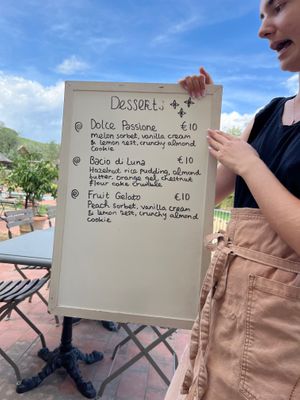 Desserts
@ Dolce Passione €10
melon sorbet, vanilla cream
& lemon zest, crunchy almond
Cookie
@ Bacio di luna €10
Hazelnut rice pudding, almond
butter, orange gel, chestnut
flour cake crumble
@ Fruit Gelato €10
Peach sorbet, vanilla cream
& lemon zest, crunchy almond
cookie